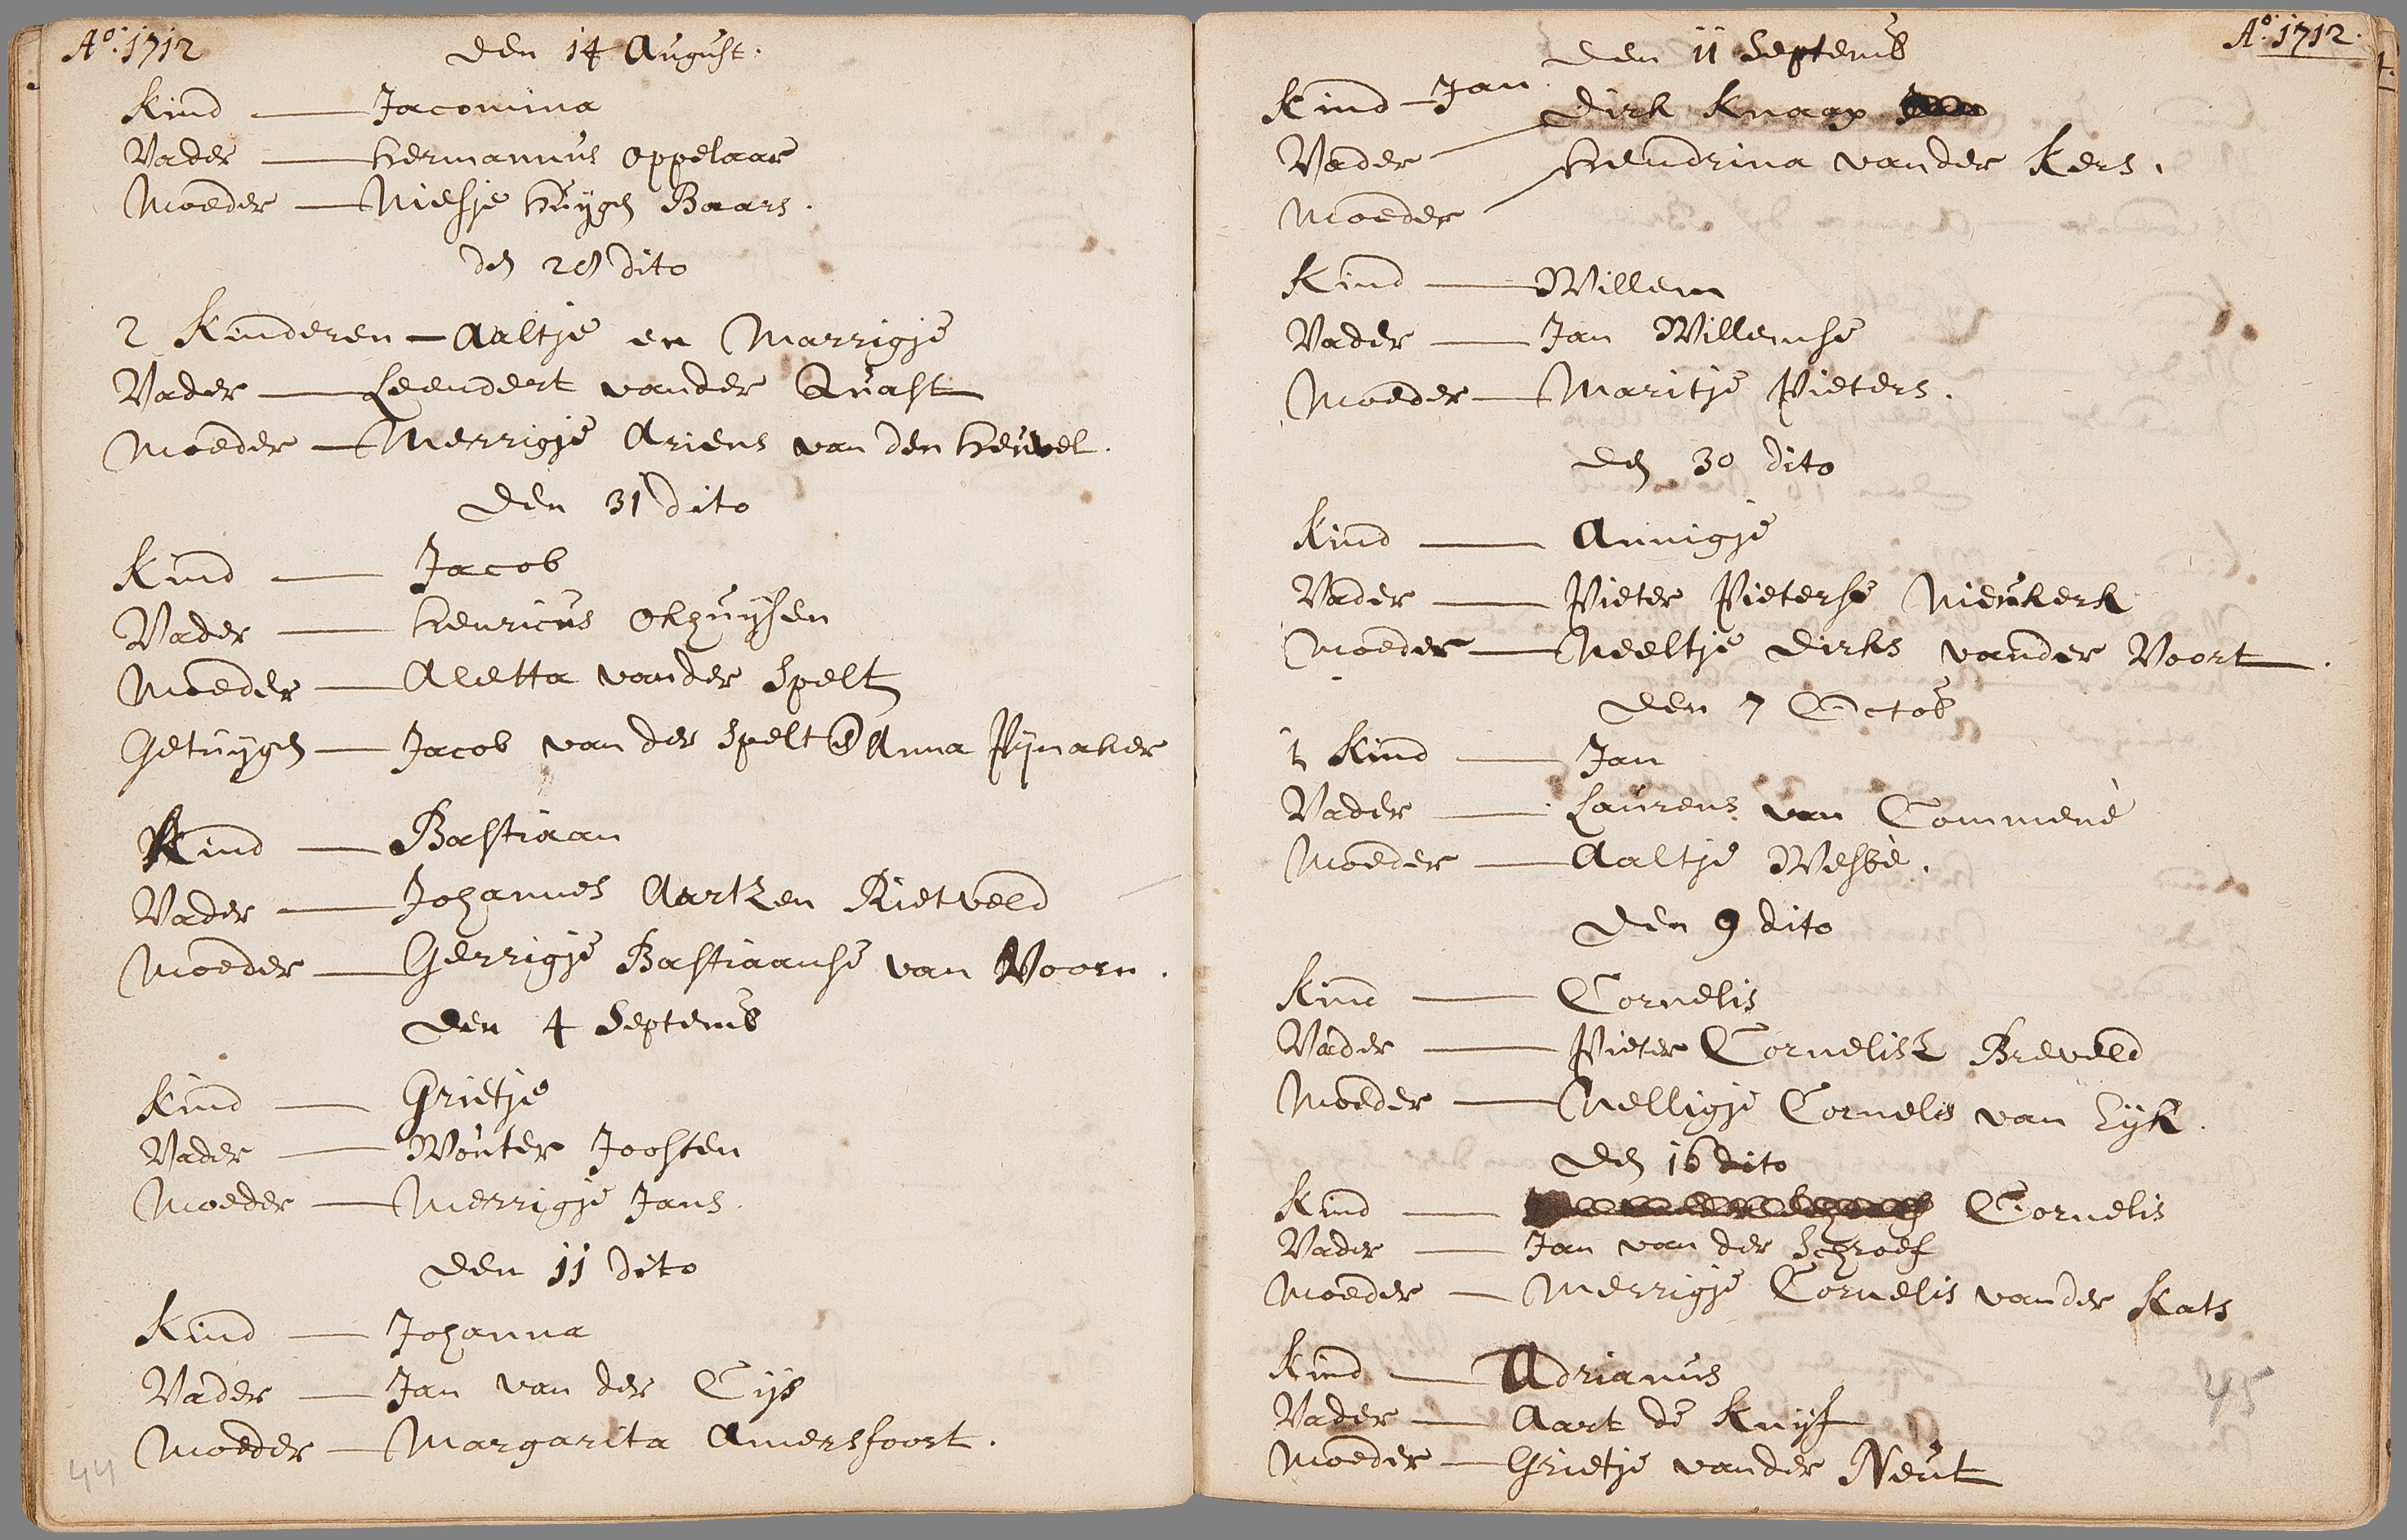 Ao. 1712
Den 14 August.
Kind — Jacomina
Vader — Hermannus Oppelaar
Moeder — Niesje Huijgen Baars.
den 28 dito
2 Kinderen — Aaltje en Marrigje
Vader — Leendert vander Quast
Moeder — Merrigje Ariens van den Heuvel.
Den 31 dito
Kind — Jacob
Vader — Henricus Okhuijsen
Moeder — Aletta vander Spelt
Getuijgen — Jacob van der Spelt en Anna Pijnaker
Kind — Bastiaan
Vader — Johannes Aartzen Rietveld
Moeder — Gerrigje Bastiaanse van Voorn.
Den 4 Septemb
Kind — Grietje
Vader — Wouter Joosten
Moeder — Merrigje Jans.
Den 11 dito
Kind — Johanna
Vader — Jan van der
Moeder — Margarita Amersfoort.
44
Ao. 1712.
Den 11 Septemb
Kind — Jan
Vader — Dirk Knaap
Moeder — Hendrina vander Kers.
Kind — Willem
Vader — Jan Willemse
Moeder — Maritje Pieters.
Den 30 dito
Kind — Annigje
Vader — Pieter Pieterse Nieukerk
Moeder — Neeltje Dirks vander Voort.
Den 7 Octob
't Kind — Jan
Vader — Laurens van Commenè
Moeder — Aaltje Wesbè.
Den 9 dito
Kind — Cornelis
Vader — Pieter Cornelisz Breveld
Moeder — Nelligje Cornelis van Eijk.
Den 16 dito
Kind — Cornelis
Vader — Jan van der Schroef
Moeder — Merrigje Cornelis vander Kats
Kind — Adrianus
Vader — Aart de Knijf
Moeder — Grietje vander Neut
45